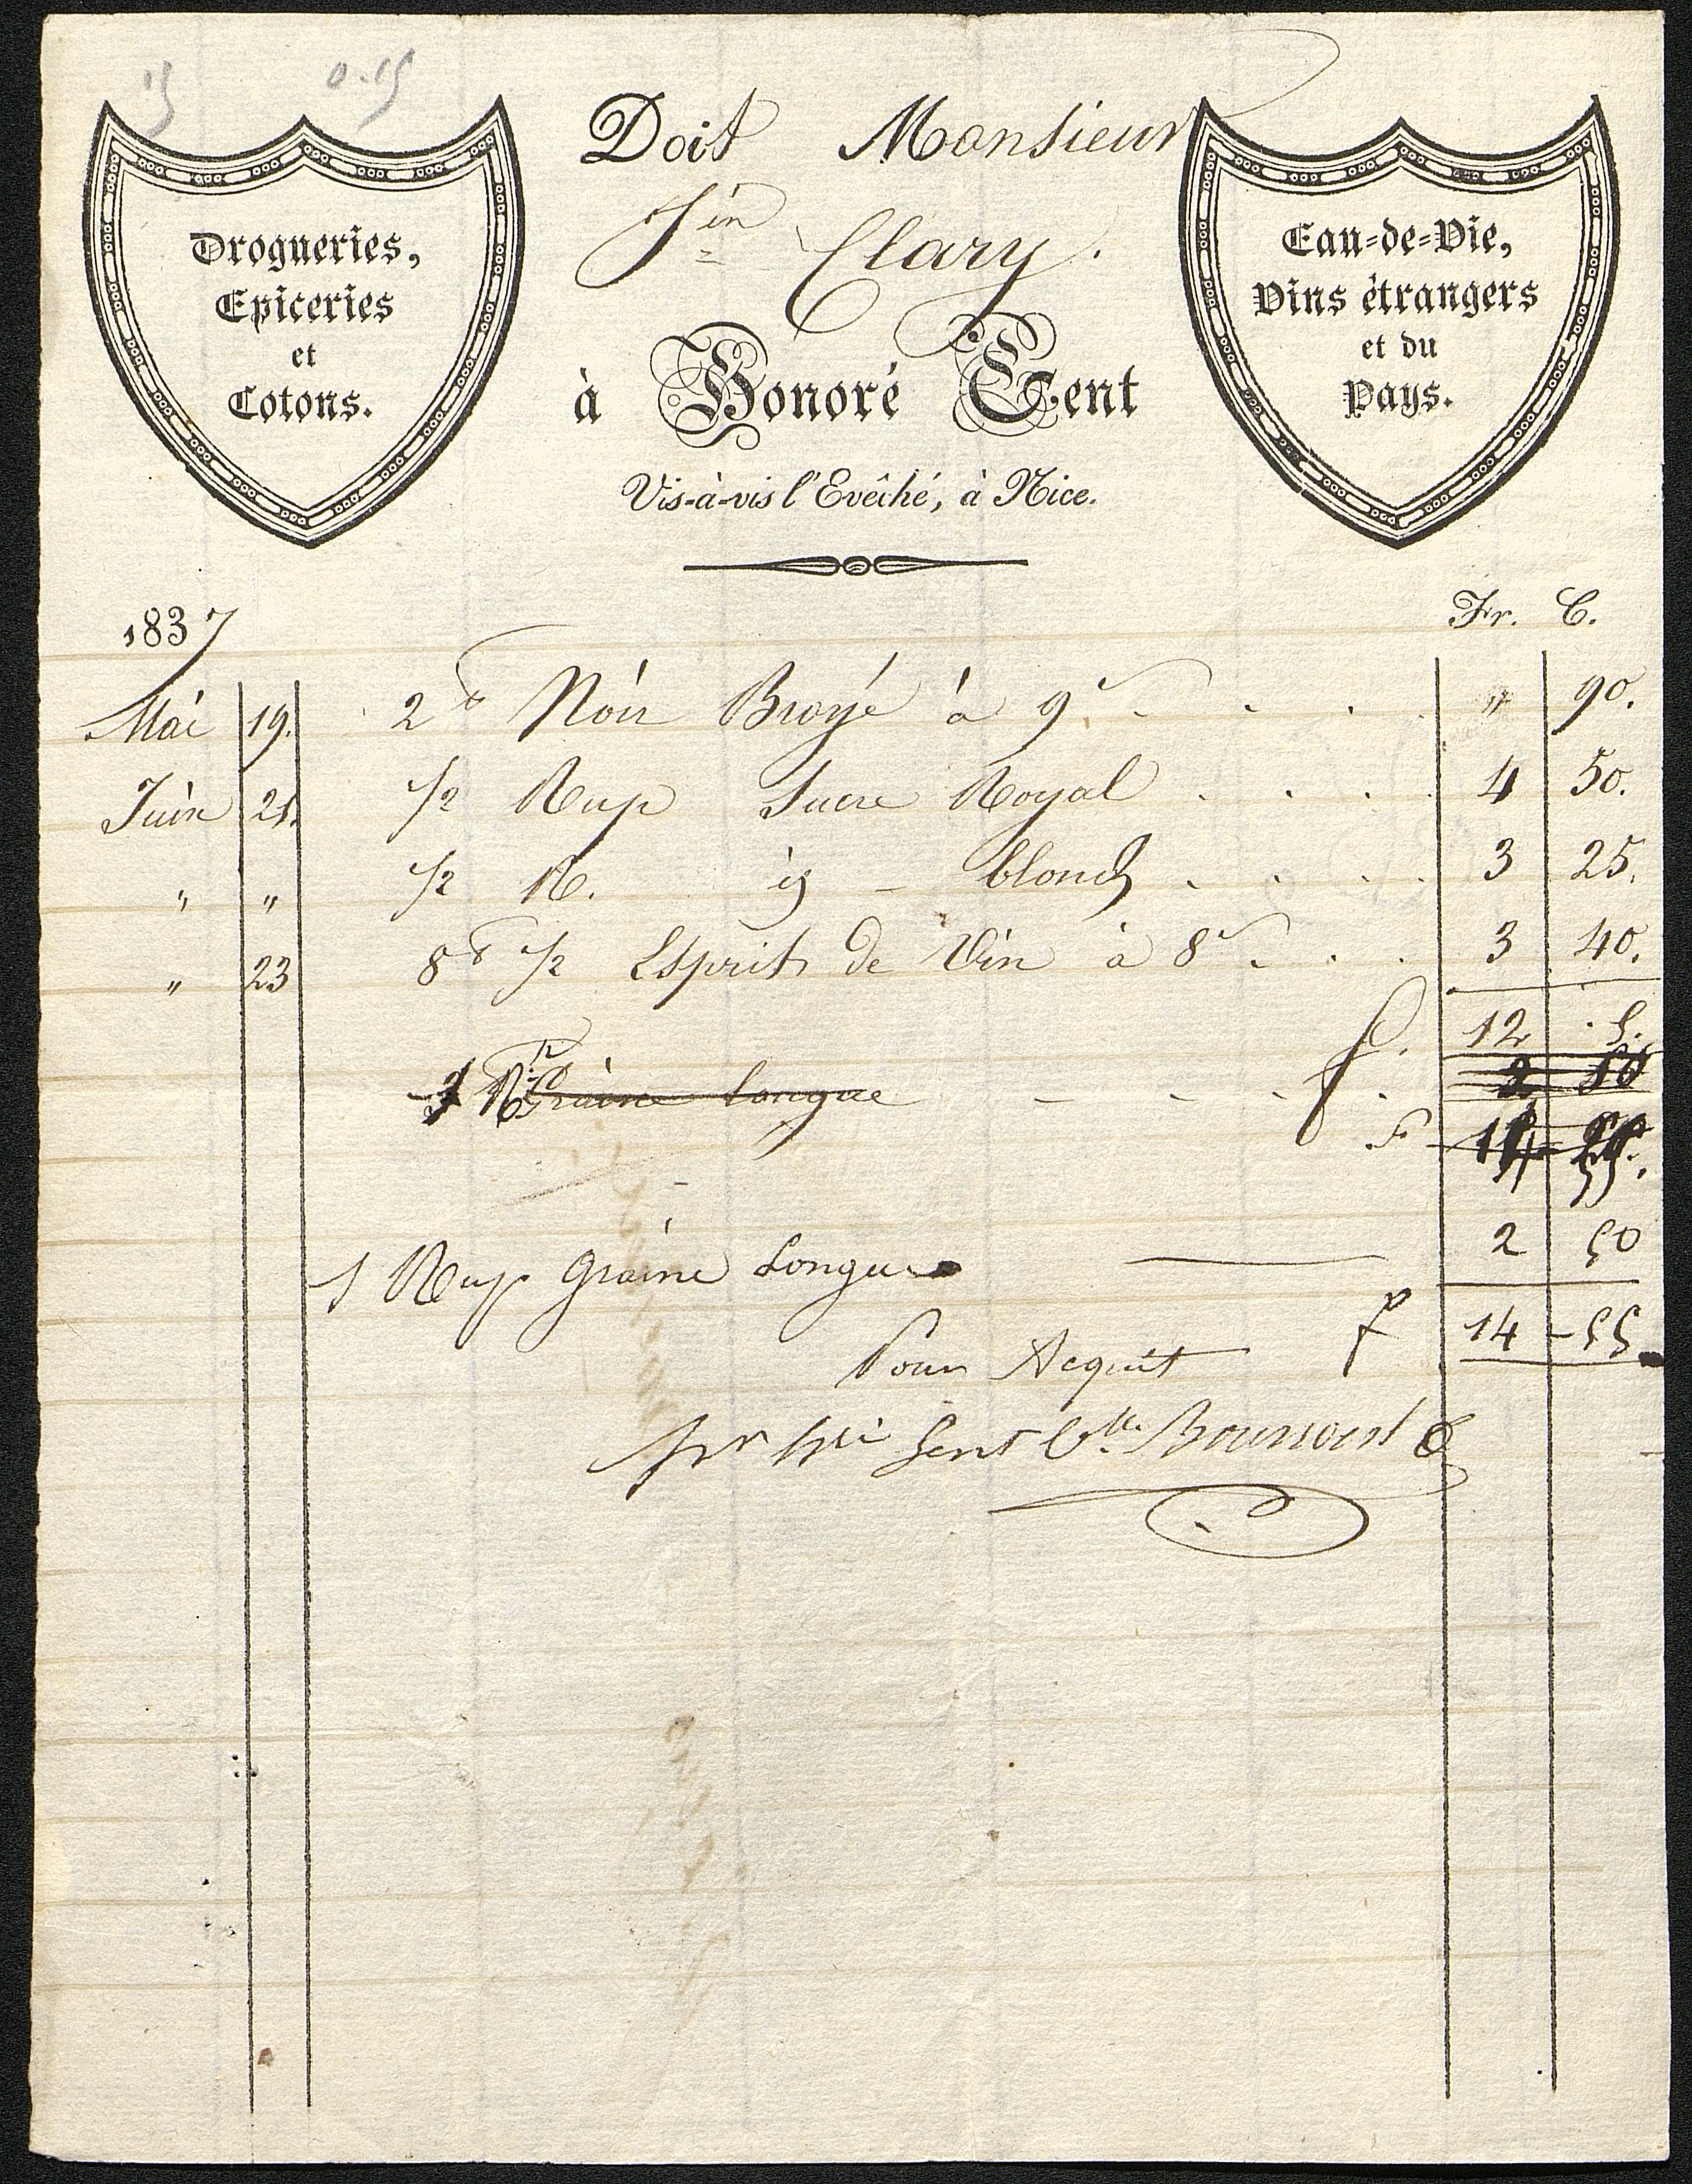 15 0.15
Drogueries,
Epiceries
et
Cotons.
Doit Monsieur
Jin Clary.
à Honoré Gent
Vis-à-vis l'Evêché, à Nice.
Eau-de-Vie,
Vins étrangers
et du
Pays.
1837 Fr. C.
Mai 19. 2 Noir Broyé à 9 " 90.
Juin 21. 1/2 Rup Sucre Royal 4 50.
" " 1/2 R. id - blond 3 25.
" 23 8 1/2 Esprit de Vin à 8 3 40.
f. 12 . 5.
1 R Graine Longue f. 2 50
F 14
1 Rup Graine Longue 2 50
f 14 - 55
Pour Acquit
pr Gent